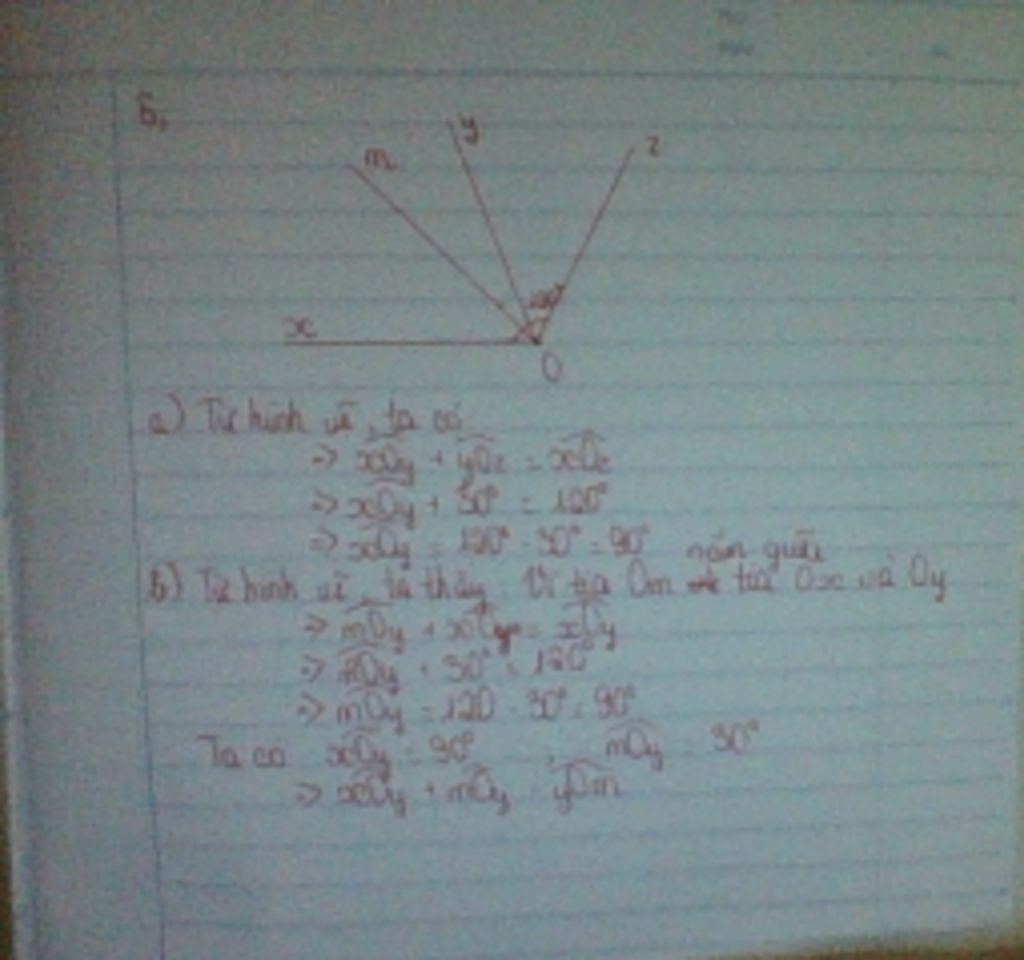 6,
y
m
z
x
O
a) Từ hình vẽ, ta có
=> xOy + yOz = xOz
=> xOy + 30° = 120°
=> xOy = 120° - 30° = 90°
nằm giữa
b) Từ hình vẽ, ta thấy Vì tia Om tia Ox và Oy
=> mOy + = xOy
=> + 30° = 120°
=> mOy = 120 - 30° = 90°
Ta co xOy = 90° , mOy = 30°
=> xOy + mOy yOm